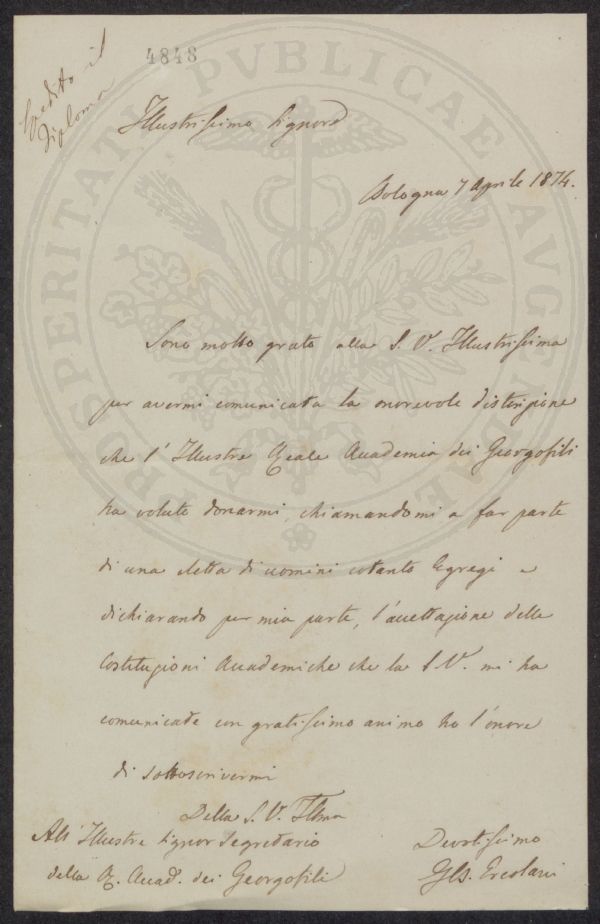 Spedito il
Diploma
4848
PROSPERITATI PVBLICAE AVGENDAE
Illustrissimo Signore
Bologna 7 Aprile 1874.
Sono molto grato alla S. V. Illustrissima
per avermi comunicata la onorevole distinzione
che l'Illustre Reale Accademia dei Georgofili
ha voluto donarmi, chiamandomi a far parte
di una eletta di uomini cotanto Egregi e
dichiarando per mia parte, l'accettazione delle
Costituzioni Accademiche che la S V. mi ha
comunicate con gratissimo animo ho l'onore
di sottoscrivermi
Della S. V. Illma
All' Illustre Signor Segretario
della R. Accad. dei Georgofili
Devotissimo
GB. Ercolani